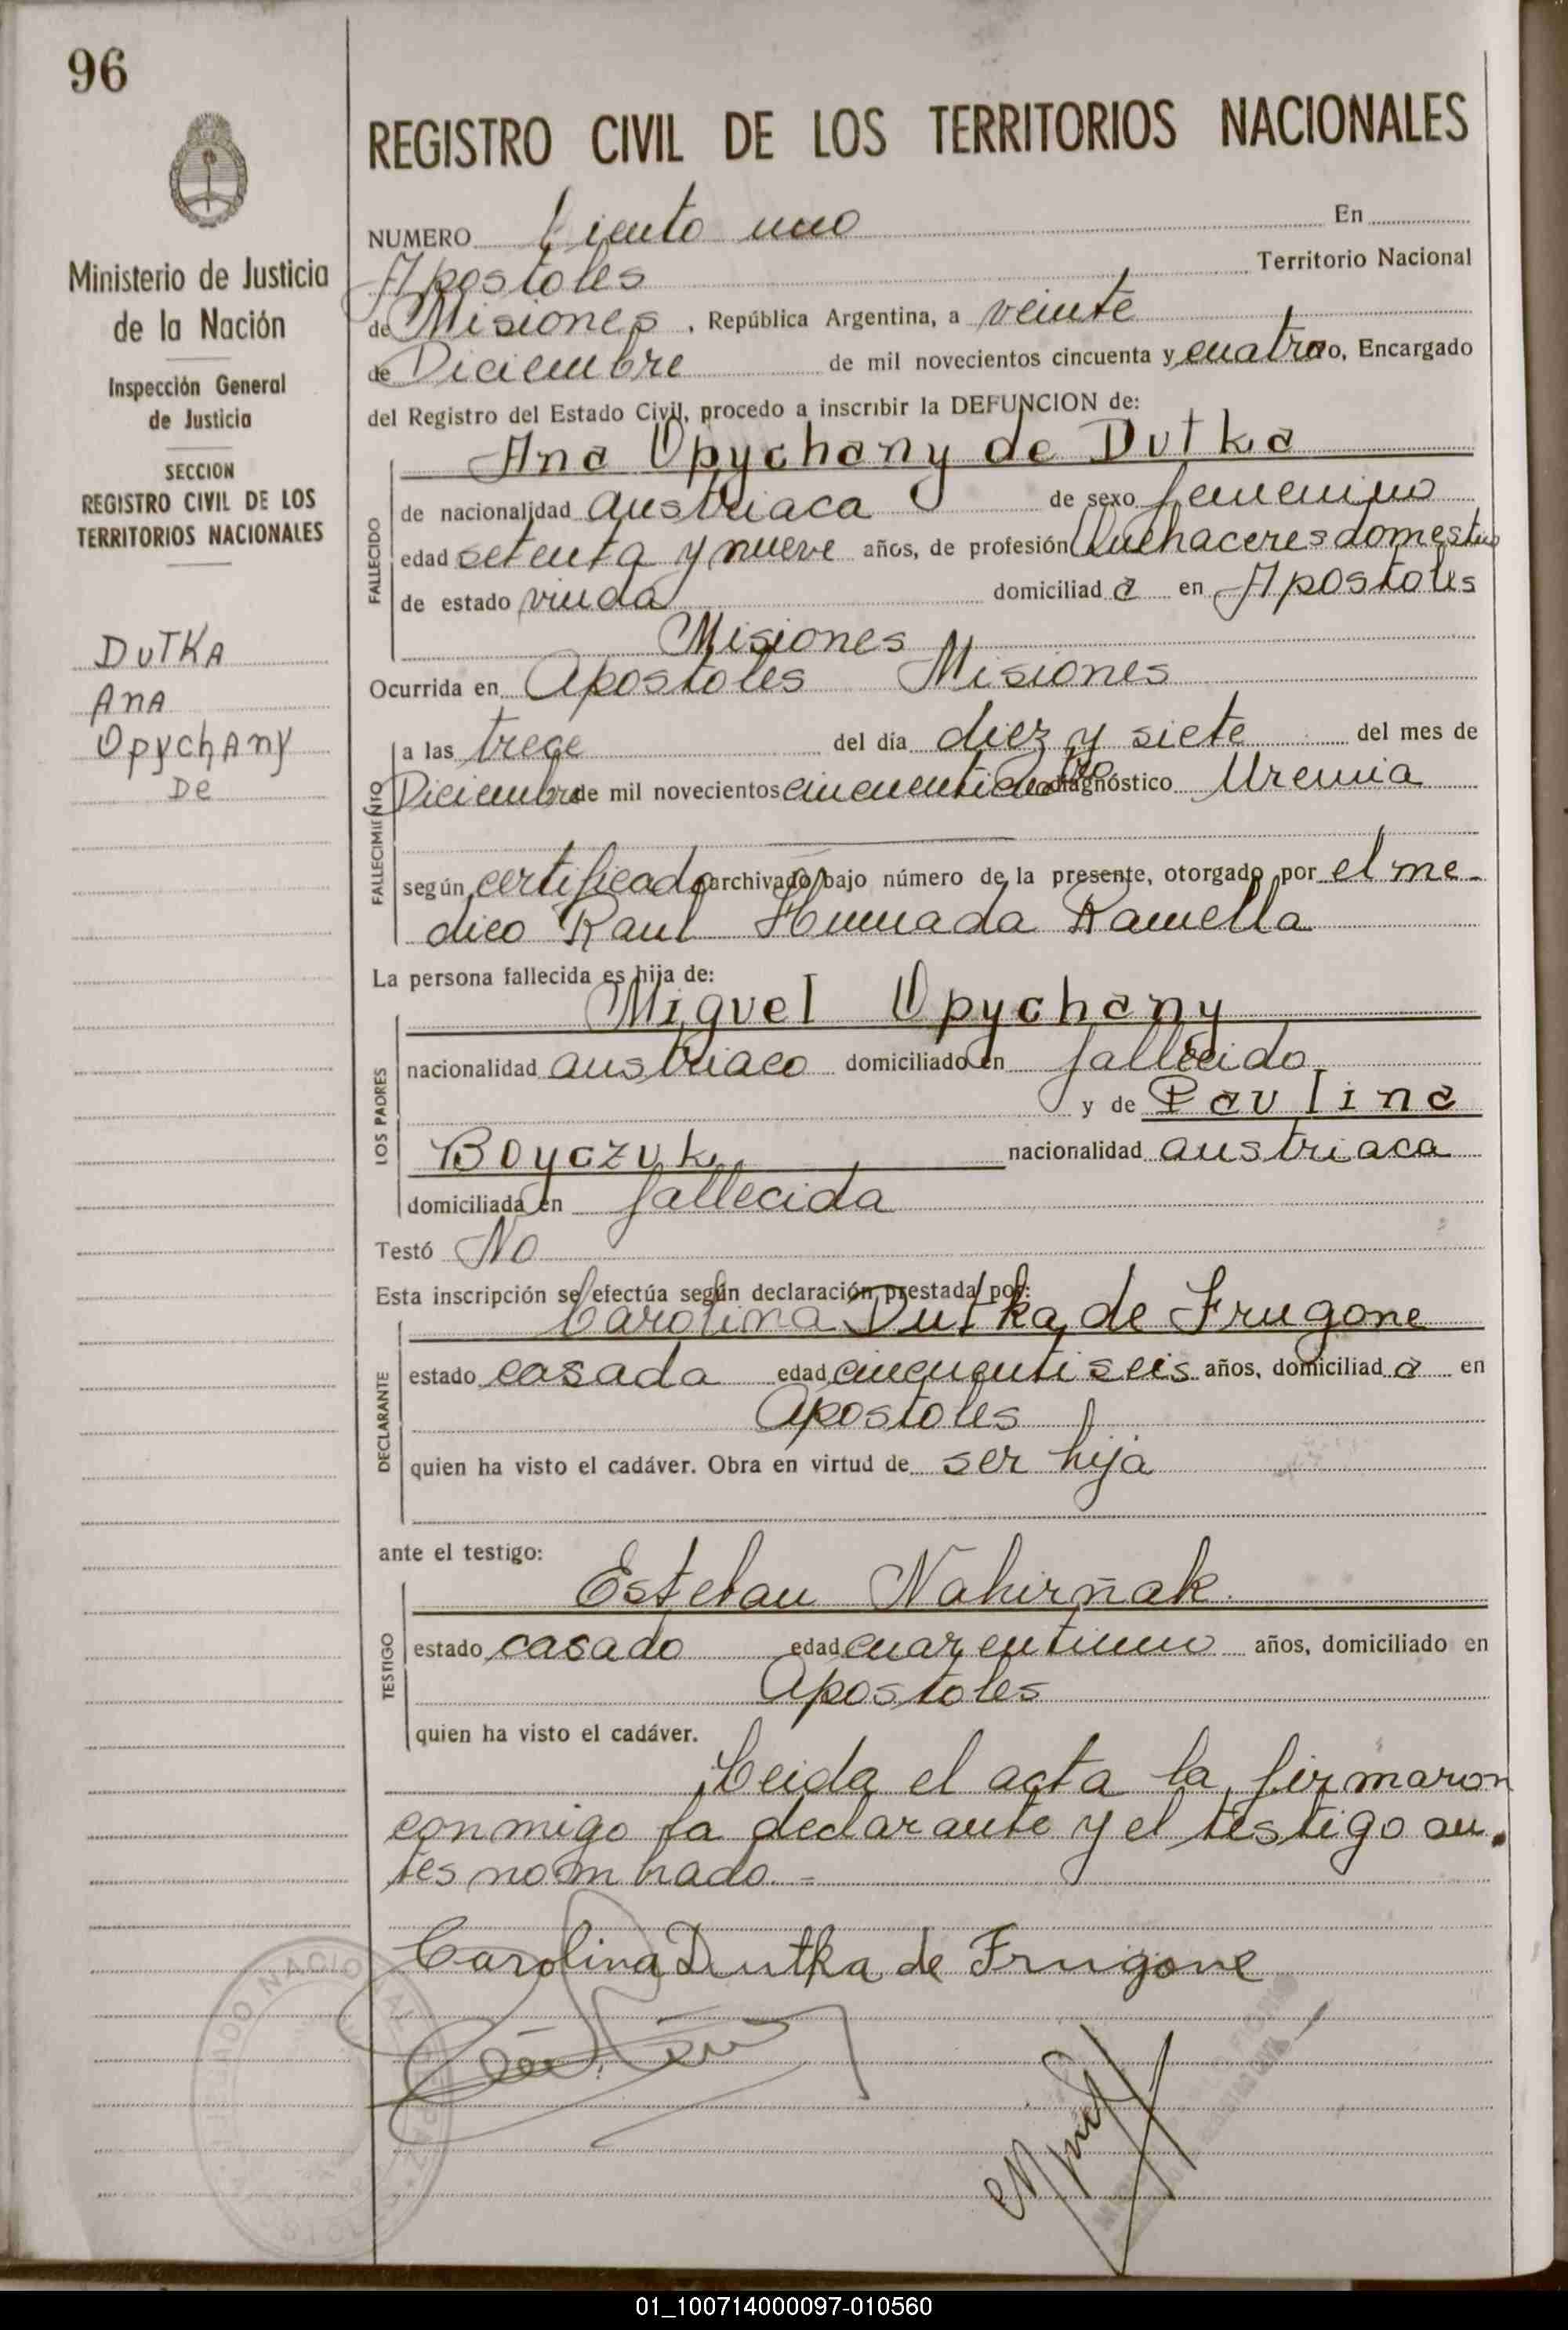 96
REGISTRO CIVIL DE LOS TERRITORIOS NACIONALES
Ministerio de Justicia
de la Nación
Inspección General
de Justicia
SECCION
REGISTRO CIVIL DE LOS
TERRITORIOS NACIONALES
DUTKA
ANA
OpychAny
De
NUMERO Ciento uno En
Apostoles Territorio Nacional
de Misiones, República Argentina, a veinte
de Diciembre de mil novecientos cincuenta y cuatro yo, Encargado
del Registro del Estado Civil, procedo a inscribir la DEFUNCION de:
Ana Opychany de Dutka
FALLECIDO
de nacionalidad austriaca de sexo femenino
edad setenta y nueve años, de profesión Quehaceres domestico
de estado viuda domiciliad a en Apostoles
Misiones
Ocurrida en Apostoles Misiones
FALLECIMIENTO
a las trece del día diez y siete del mes de
Diciembre de mil novecientos cincuenticuatro diagnóstico Uremia
según certificado archivado bajo número de la presente, otorgado por el me-
dico Raul Humada Ramella
La persona fallecida es hija de:
LOS PADRES
Miguel Opychany
nacionalidad austriaco domiciliado en fallecido
y de Paulina
Boyczuk nacionalidad austriaca
domiciliada en fallecida
Testó No
Esta inscripción se efectúa según declaración prestada por:
DECLARANTE
Carolina Dutka de Frugone
estado casada edad cincuentiseis años, domiciliad a en
Apostoles
quien ha visto el cadáver. Obra en virtud de ser hija
ante el testigo:
TESTIGO
Esteban Nahirñak
estado casado edad cuarentiuno años, domiciliado en
Apostoles
quien ha visto el cadáver.
Leida el acta la firmaron
conmigo la declarante y el testigo an-
tes nombrado.=
Carolina Dutka de Frugone
01_100714000097-010560